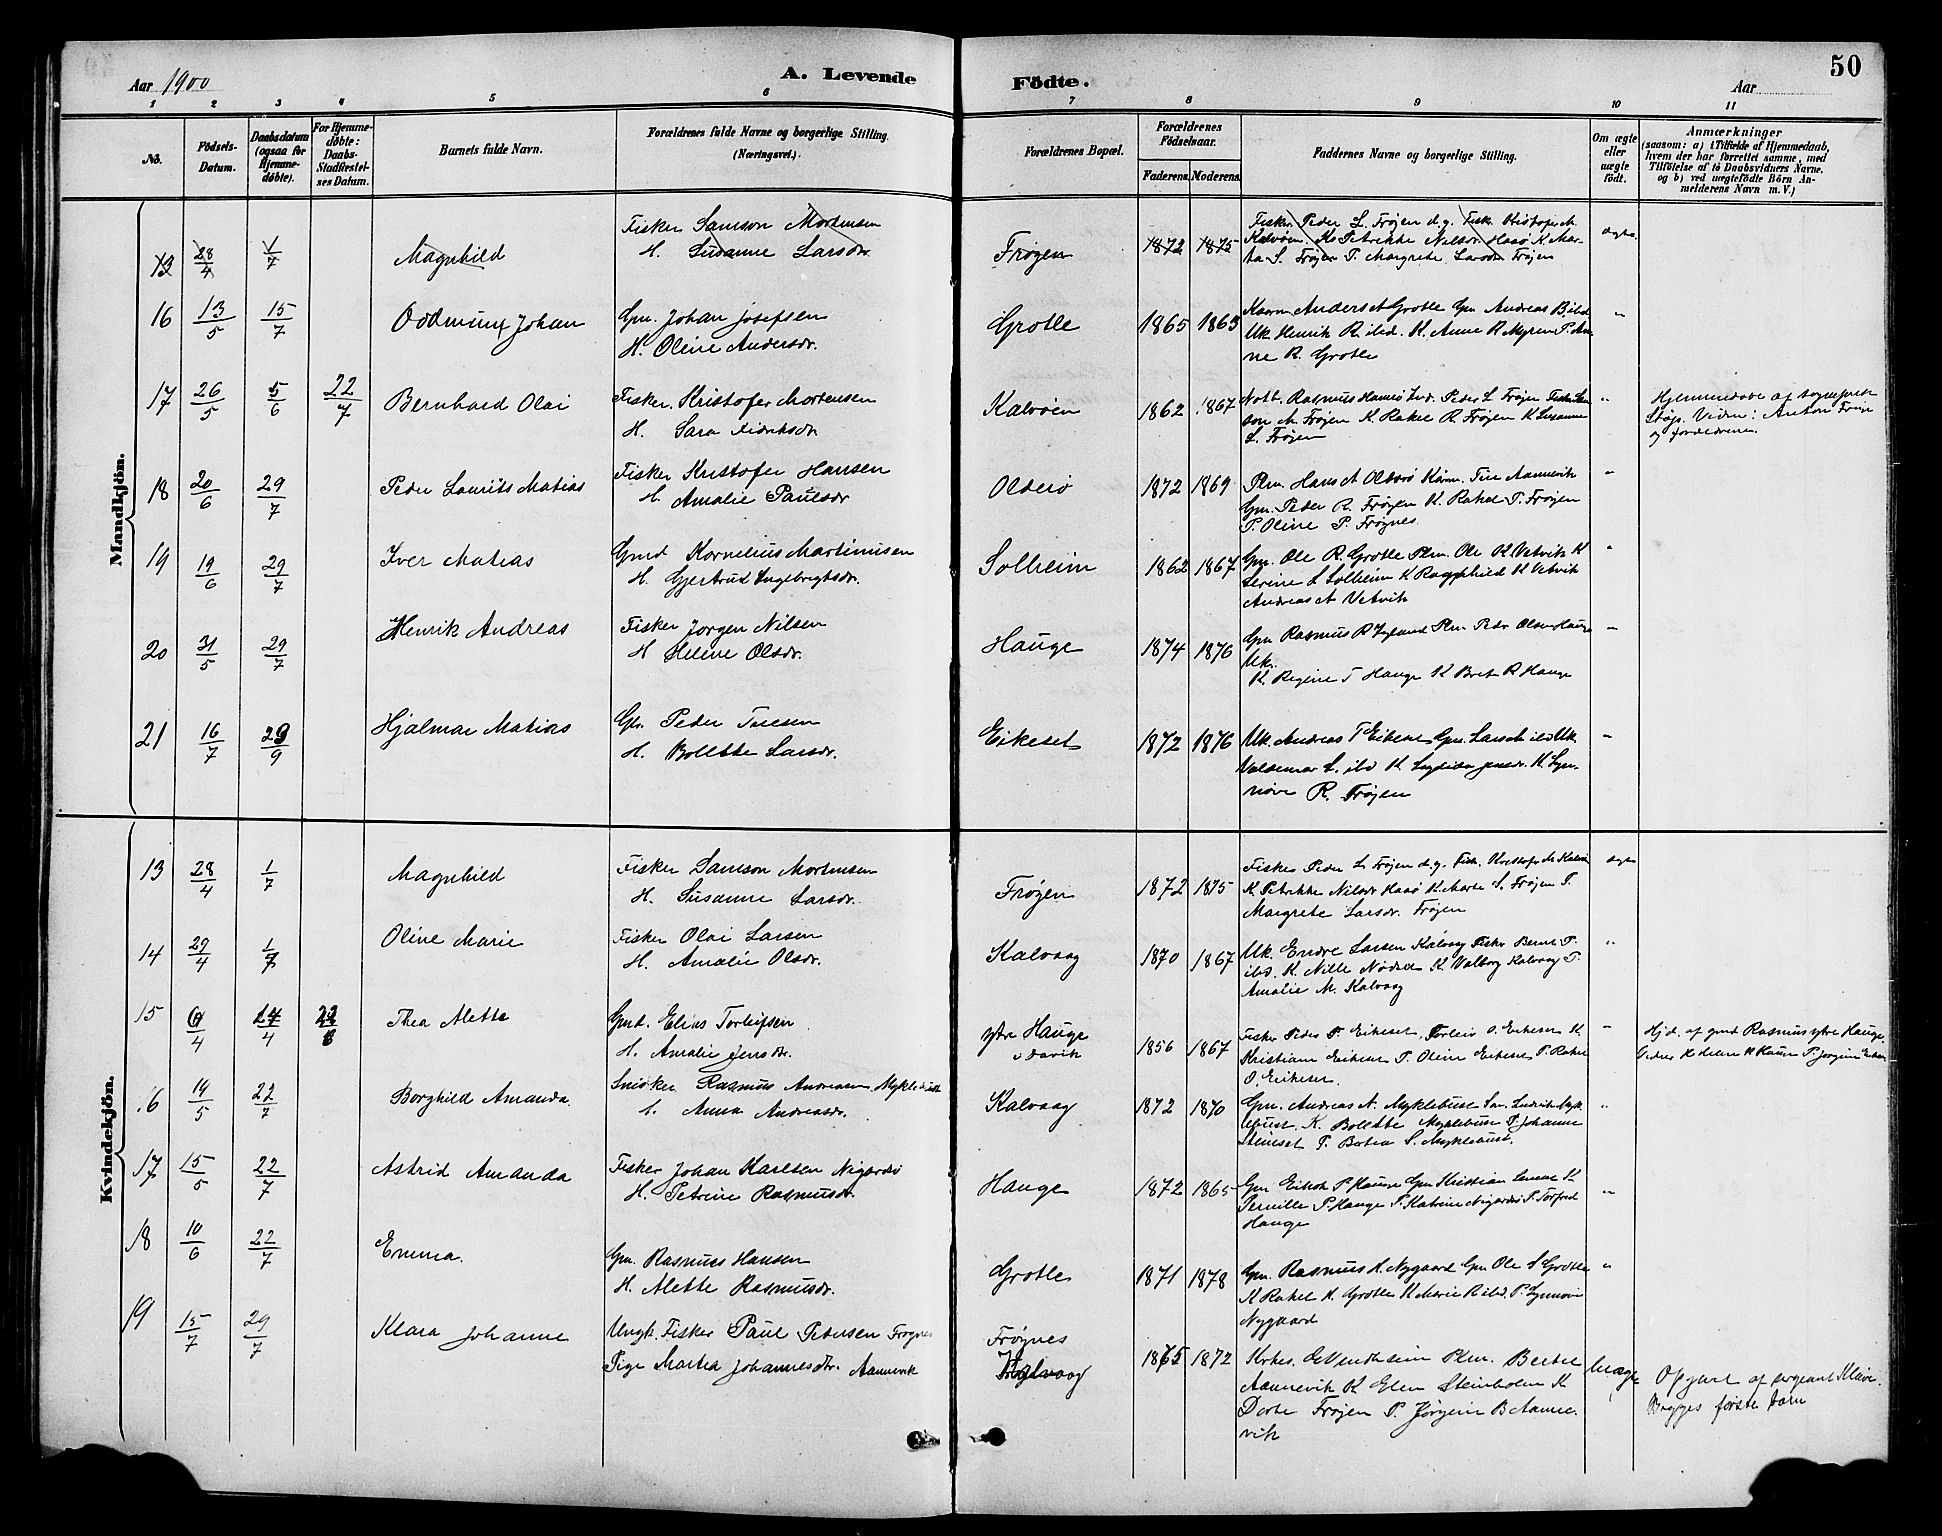 50
Aar 1900
A. Levende
Födte.
Aar
1 2 3 4 5 6 7 8 9 10 11
No.
Födsels-Datum.
Daabsdatum (ogsaa for Hjemme-döbte).
For Hjemme-döbte: Daabs-Stadfæstel-ses Datum.
Barnets fulde Navn.
Forældrenes fulde Navne og borgerlige Stilling.
(Næringsvei.)
Forældrenes Bopæl.
Forældrenes Födselsaar.
Faderens. Moderens.
Faddernes Navne og borgerlige Stilling.
Om ægte eller uægte födt.
Anmærkninger
(saasom: a) i Tilfælde af Hjemmedaab,
hvem der har forrettet samme, med
Tilföielse af to Daabsvidners Navne,
og b) ved uægtefödte Börn An-
melderens Navn m. V.)
Mandkjön.
13 28/4 1/7 Magnhild
Fisker Samson Mortensen
H. Susanne Larsdr.
Frøyen 1872 1875
Fisker Peder L. Frøjen d.y. Fisk. Kristofer M
Kalvøen. K. Petrikke Nilsdr Haasø K. Mar-
ta S. Frøjen P. Margrete Larsdr Frøjen
ægte
16 13/5 15/7 Oddmund Johan
Gm. Johan Josefsen
H. Oline Andersdr.
Grotle 1865 1863
Kaarm. Anders A Grotle Gm Andreas B. ibid
Uk. Henrik R. ibid. K. Anne R Myren P. An-
ne R. Grotle
"
17 26/5 5/6 22/7 Bernhard Olai
Fisker. Kristofer Mortensen
H. Sara Fidriksdr
Kalvøen 1862 1867
Nott. Rasmus Hansø Peder L Frøjen Fisker Sam-
son M. Frøjen K Rakel R. Frøjen K Susanne
L. Frøjen
"
Hjemmedøbt af sogneprest
Støp. Vidner: Anton Frøje
og forældrene.
18 20/6 29/7 Peder Laurits Matias
Fisker Kristofer Hansen
H. Amalie Paulsdr
Olderø 1872 1869
Plm. Hans A Olderø Kårm. Aannevik
Gm. Peder R. Frøyen K. Rakel P. Frøyen
P. Oline P. Frøynes
"
19 19/6 29/7 Iver Matias
Gmd Kornelius Martinusen
H. Gjertrud Ingebrigtsdr.
Solheim 1862 1867
Gm. Ole R. Grotle Plm. Ole K Vetvik K
Serine L Solheim K Ragnhild K Vetvik
Andreas A Vetvik
"
20 31/5 29/7 Henrik Andreas
Fisker Jorgen Nilsen
H Helene Olsdr.
Hauge 1874 1876
Gm Rasmus R Plm. Pedr Olsen Hauge
Uk.
K. Regine T Hauge K Beret R Hauge
"
21 16/7 29/9 Hjalmar Matias
Gm. Peder
H. Bolette Larsdr.
Eikeset 1872 1876
Uk. Andreas T Eikeset Gm. Lars M ibid Uk
Valdemar L. ibd K K. Syn-
nøve R. Frøjen
"
Kvindekjön.
13 28/4 1/7 Magnhild
Fisker Samson Mortensen
H. Susanne Larsdr.
Frøyen 1872 1875
Fisker Peder L Frøjen d.y. Fisk. Kristofer M Kalvø
K Petrikke Nilsdr Haasø K. Marte S. Frøjen P.
Margrete Larsdr. Frøjen
ægte
14 29/4 1/7 Oline Marie
Fisker Olai Larsen
H. Amalie Olsdr.
Kalvaag 1870 1867
Uk. Endre Larsen Kalvaag Fisker Bernt P.
ibd. K. Nille K Valborg Kalvaag P.
Amalie M. Kalvaag
"
15 Thea Alette
Gmd. Elias Torleifsen
H. Amalie Jensdtr.
ytre Hauge
i Davik 1856 1867
Fisker Peder P. Eikeset, Torleiv O. Eikeset K
Kristiane Eikeset P. Oline Eikeset P. Rakel
O. Eikeset.
"
Hjd. af gmd Rasmus ytre Hauge.
16 14/5 22/7 Borghild Amanda.
Snidker Rasmus Andreasen Myklebust
H. Anna Andreasdr.
Kalvaag 1872 1870
Gm. Andreas N. Myklebust
K. Bolette Myklebust P Johanne
Steinset P. Berta S. Myklebust.
"
17 15/5 22/7 Astrid Amanda
Fisker Johan Karlsen Nigardsø
H. Petrine Rasmusdr.
Hauge 1872 1865
Gm P Hauge Gm Kristian K
Pernille P Hauge P. Katrine Nigardsø P. Torfred
Hauge
"
18 10/6 22/7 Emma.
Gm. Rasmus Hansen
H. Alette Rasmusdr.
Grotle 1871 1878
Gm. Rasmus K. Nygaard Gm Ole S Grotle
K Rakel K. Grotle K Marie R ibid. P. Synnøve
Nygaard
"
19 15/7 29/7 Klara Johanne
Ungk. Fisker Paul Petersen Frøynes
Pige Martha Johannesdtr. Aannevik
Frøynes
Kalvaag
1865 1872
Kirkes. Plm. Bertel
Aannevik K Elen Steinholm K
Dorte Frøjen P. Jørgine B Aanne-
vik
Uægte
Opgivet af sergeant Kleive.
Begges første barn